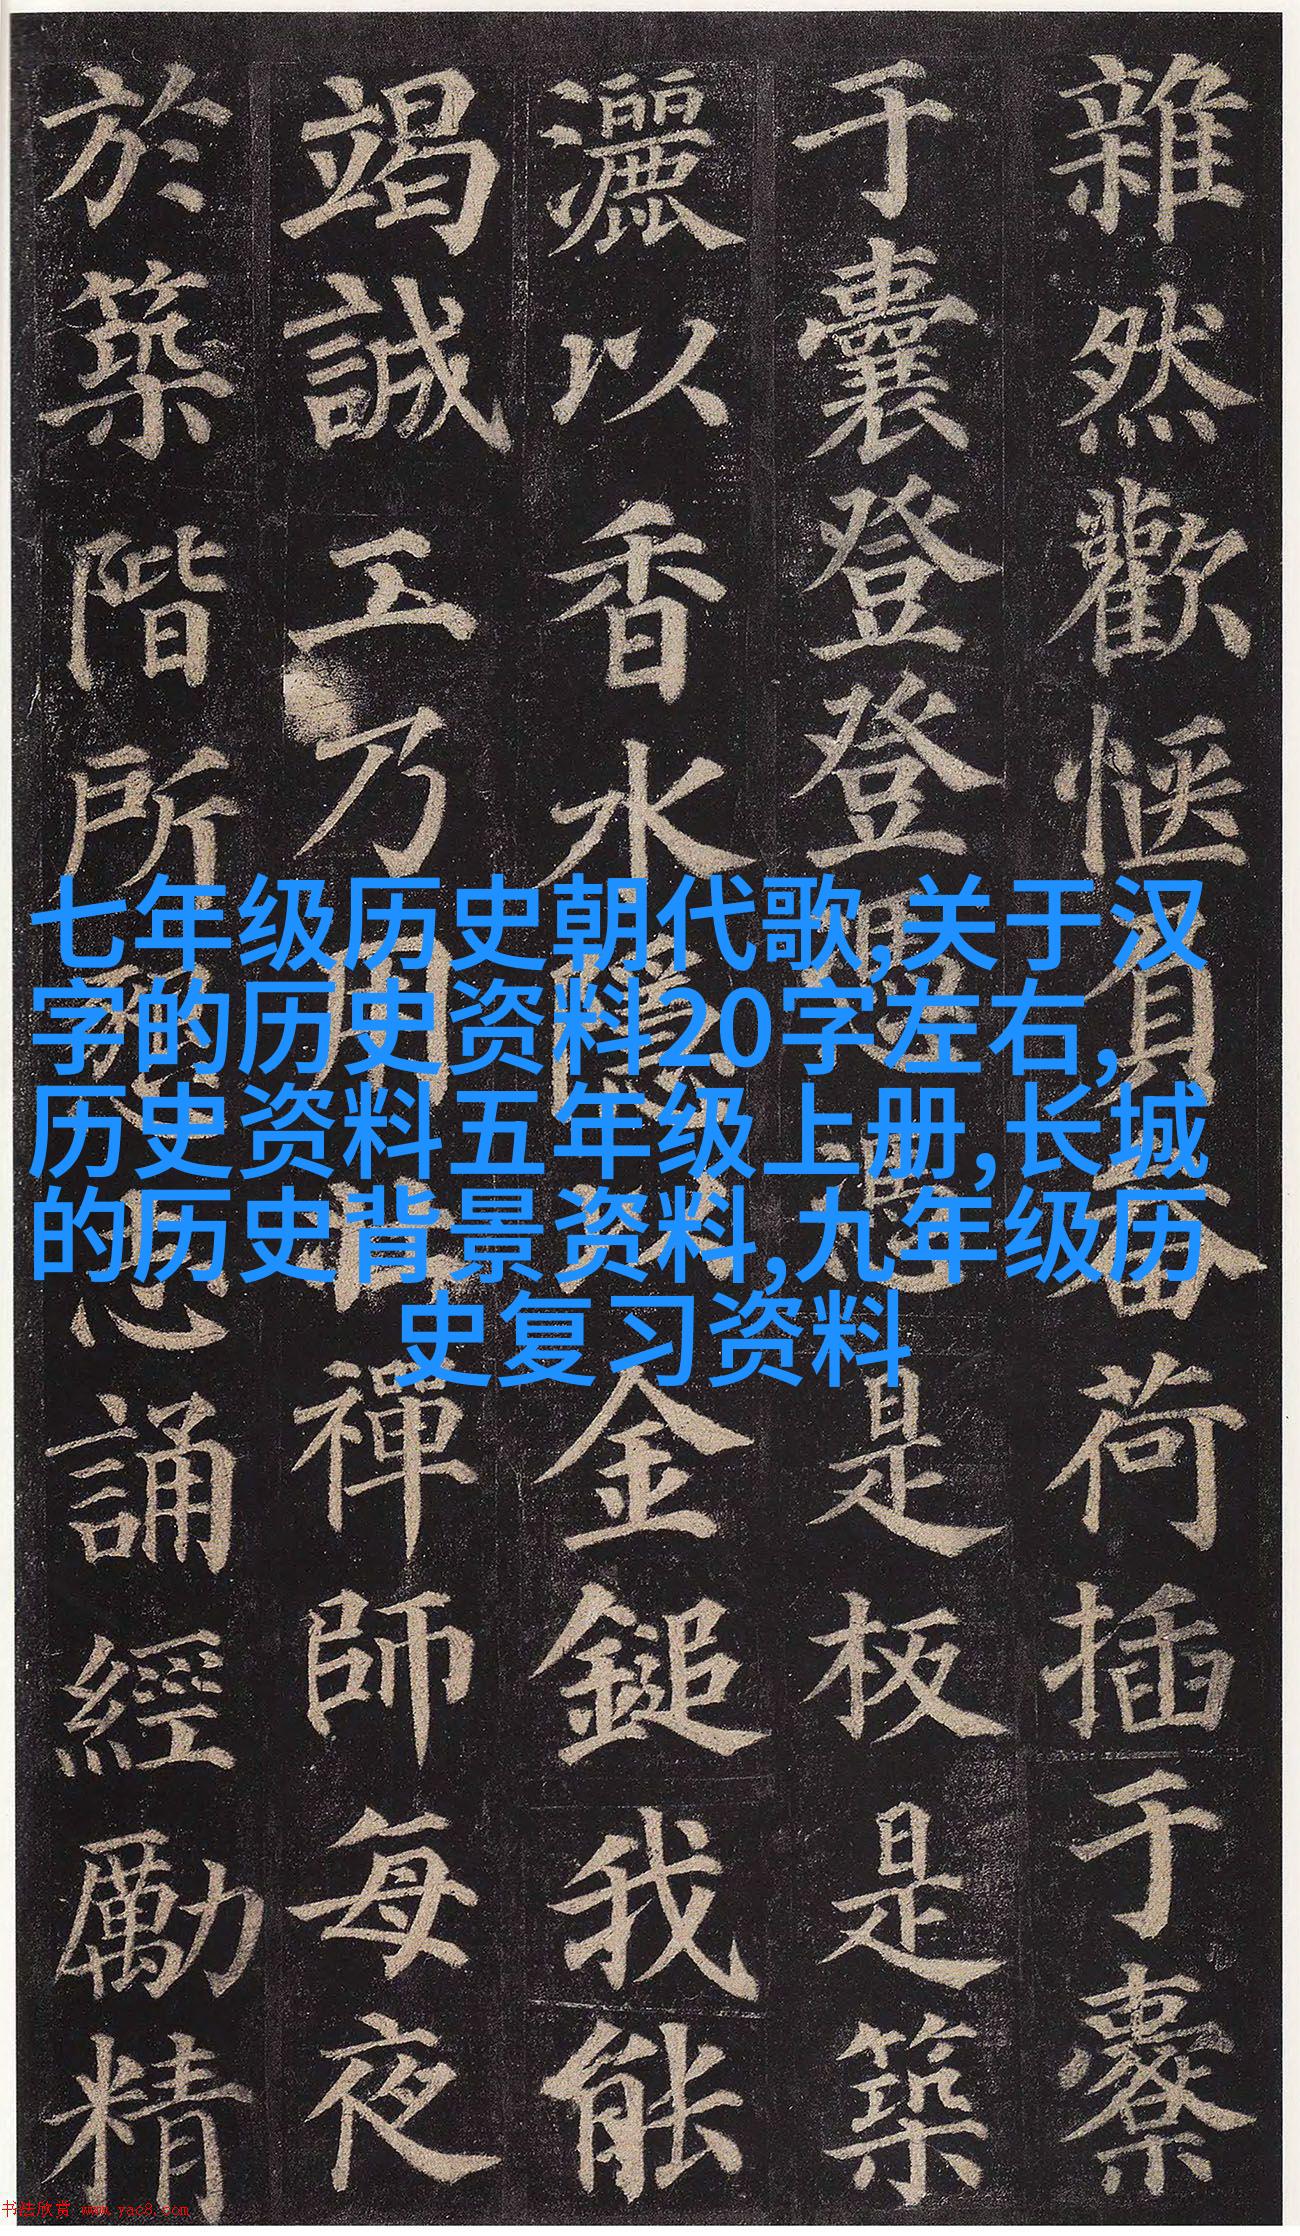 雜然歡愜負畚荷插于橐
于囊登登憑憑是板是築
灑以香水隱以金鎚我能
竭誠工乃用壯禪師每夜
於築階所懇志誦經勵精
七年级历史朝代歌,关于汉
字的历史资料20字左右,
历史资料五年级上册,长城
的历史背景资料,九年级历
史复习资料
书法欣赏 www.yac8.com